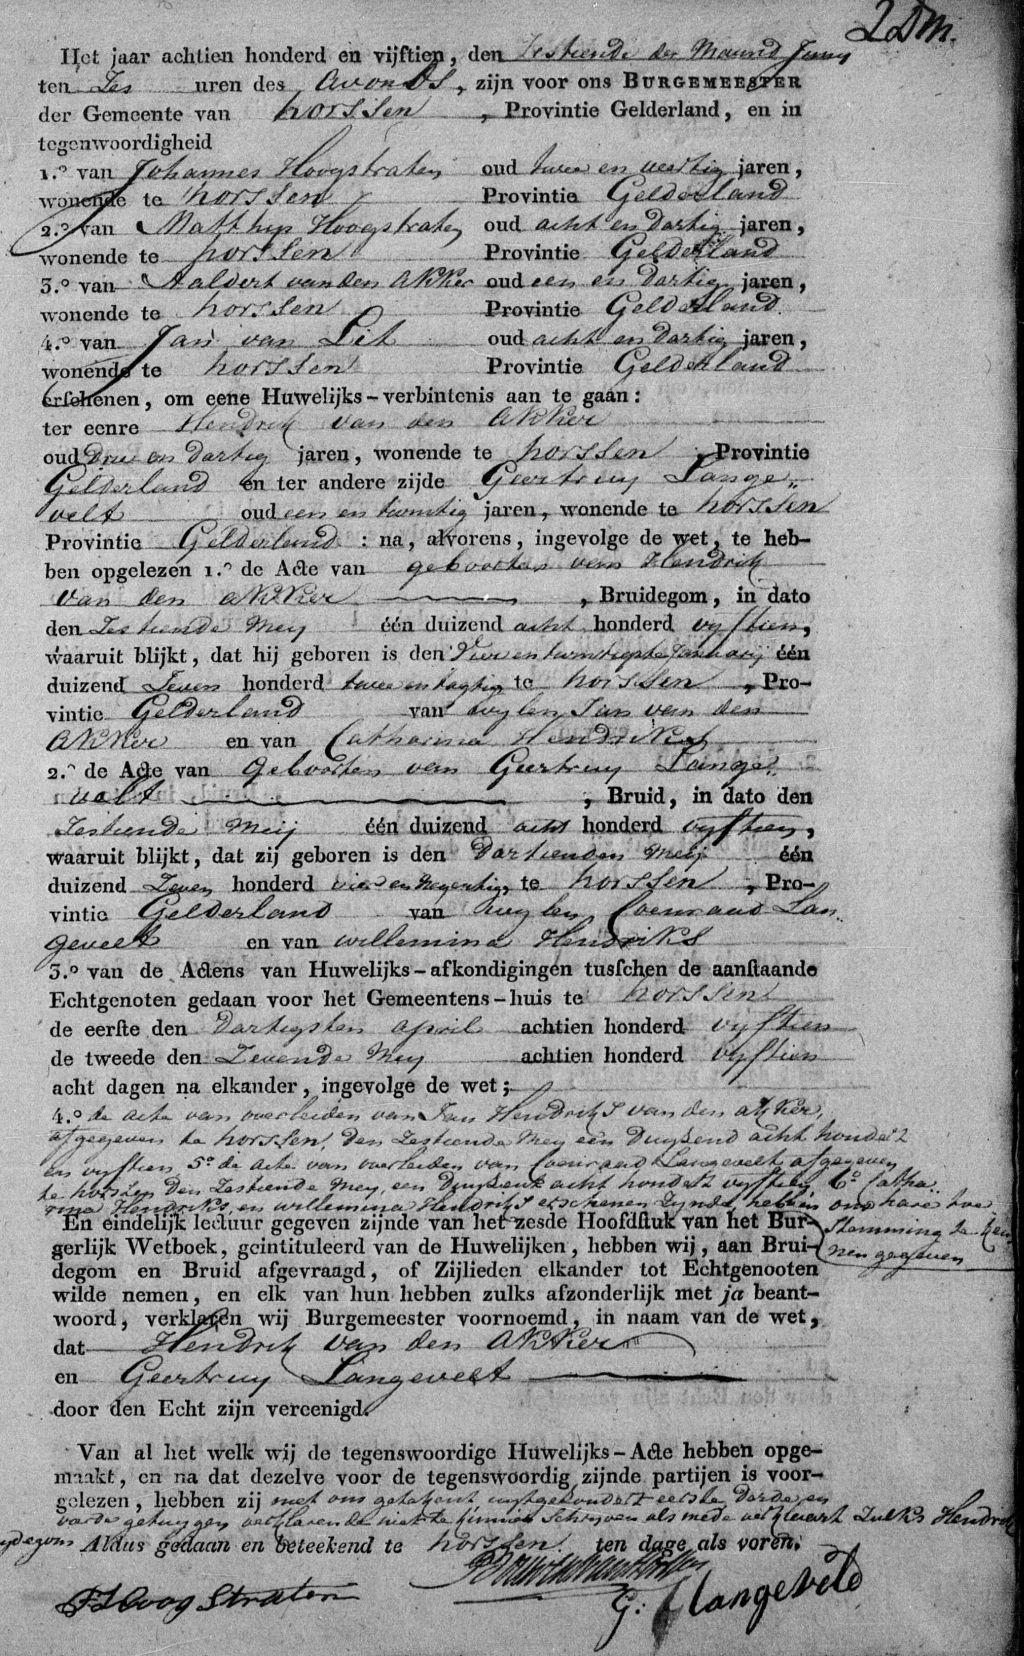 2 Dm.
Het jaar achtien honderd en vijftien, den Zestiende der Maand Juny
ten Zes uren des avonds, zijn voor ons BURGEMEESTER
der Gemeente van horssen, Provintie Gelderland, en in
tegenwoordigheid
1.º van Johannes Hoogstraten oud twee en veertig jaren,
wonende te horssen Provintie Gelderland
2.º van Matthys Hoogstraten oud acht en dartig jaren,
wonende te horssen Provintie Gelderland
3.º van Aaldert van den akker oud een en dartig jaren,
wonende te horssen Provintie Gelderland
4.º van Jan van Lit oud acht en dartig jaren,
wonende te horssen Provintie Gelderland
erschenen, om eene Huwelijks-verbintenis aan te gaan:
ter eenre Hendrik van den akker
oud drie en dartig jaren, wonende te horssen Provintie
Gelderland en ter andere zijde Geertruy Lange-
velt oud een en twintig jaren, wonende te horssen
Provintie Gelderland: na, alvorens, ingevolge de wet, te heb-
ben opgelezen 1.º de Acte van geboorten van Hendrik
van den akker, Bruidegom, in dato
den Zestiende Mey één duizend acht honderd vyftien,
waaruit blijkt, dat hij geboren is den Vier en twintigste January één
duizend Zeven honderd twee en tagtig te horssen, Pro-
vintie Gelderland van wylen Jan van den
akker en van Catharina Hendriks
2.º de Acte van Geboorten van Geertruy Lange-
velt, Bruid, in dato den
Zestiende Meij één duizend acht honderd vyftien,
waaruit blijkt, dat zij geboren is den Dartienden Meij één
duizend Zeven honderd vier en Negentig, te horssen, Pro-
vintie Gelderland van wylen Coenraad Lan-
gevelt en van willemina Hendriks
3.º van de Actens van Huwelijks-afkondigingen tusschen de aanstaande
Echtgenoten gedaan voor het Gemeentens-huis te horssen
de eerste den Dartigsten april achtien honderd vyftien
de tweede den Zevende Mey achtien honderd vyftien
acht dagen na elkander, ingevolge de wet;
4.º de acte van overleiden van Jan Hendriks van den akker,
afgegeven te horssen, den Zestiende Mey een Duysend acht honderd
en vyftien, 5º de acte van overleiden van Coenraad Langevelt afgegeven
te horssen den Zestiende Mey, een Duysent acht hondert vyftien 6º Catha-
rina Hendriks, en willemina Hendriks erschenen Zynde, hebben ons hare toe
stemming te ken-
nen gegeven
En eindelijk lectuur gegeven zijnde van het zesde Hoofdstuk van het Bur-
gerlijk Wetboek, geintituleerd van de Huwelijken, hebben wij, aan Brui-
degom en Bruid afgevraagd, of Zijlieden elkander tot Echtgenooten
wilde nemen, en elk van hun hebben zulks afzonderlijk met ja beant-
woord, verklaren wij Burgemeester voornoemd, in naam van de wet,
dat Hendrik van den akker
en Geertruy Langevelt
door den Echt zijn vereenigd.
Van al het welk wij de tegenswoordige Huwelijks-Acte hebben opge-
maakt, en na dat dezelve voor de tegenswoordig zijnde partijen is voor-
gelezen, hebben zij met ons getekent uytgesondert eerste Darde en
varde getuygen verklarende niet te kunnen Schryven als mede verklaart Zulks Hendrik
Aldus gedaan en beteekend te horssen ten dage als voren.
Hoog Straten
G: Langeveld